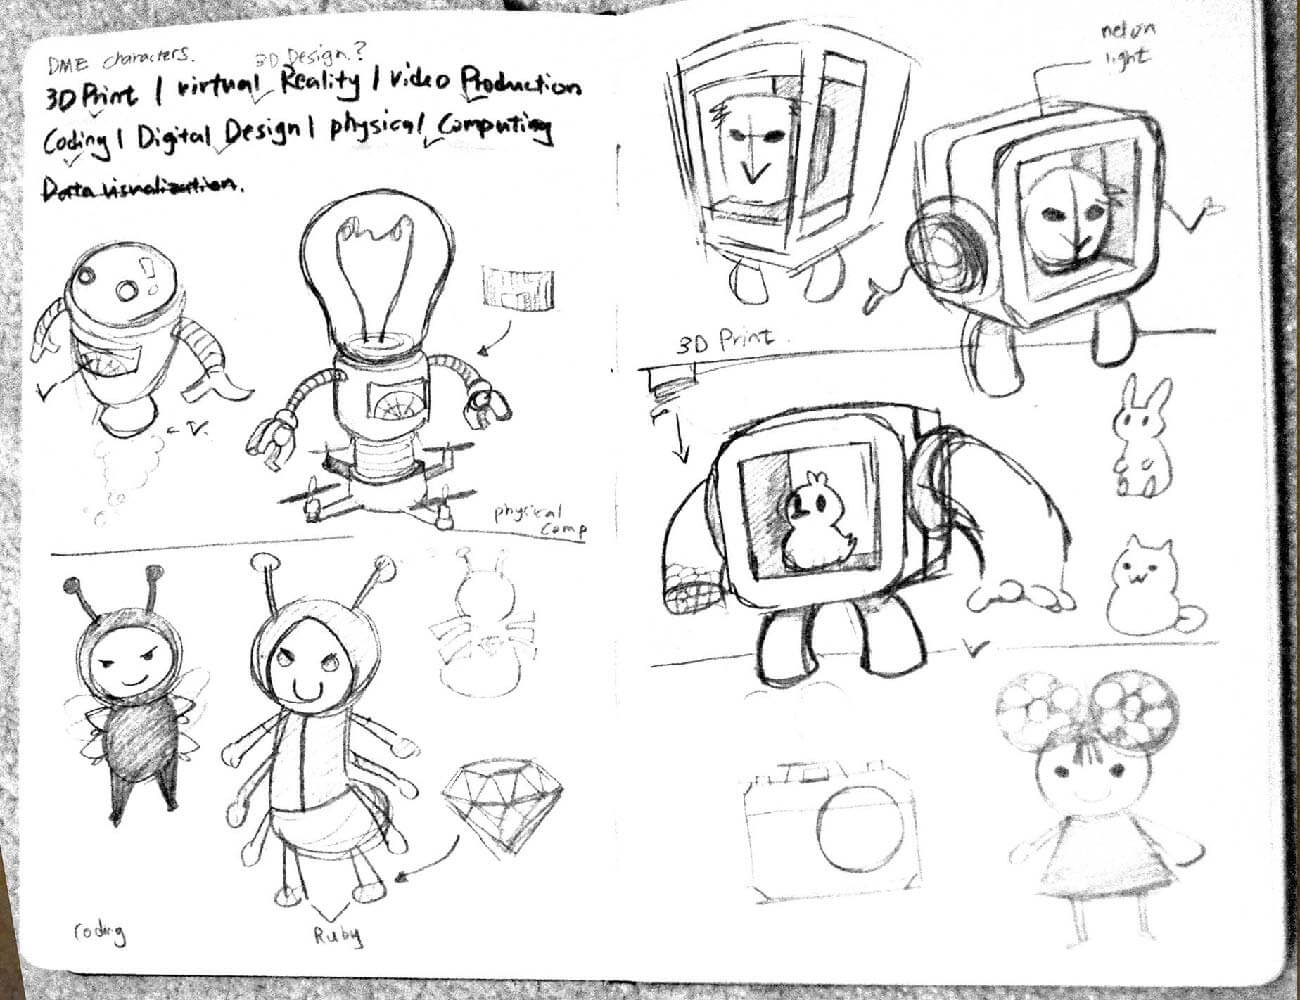 DME characters.
3D Design?
3D Print / virtual Reality / video Production
Coding / Digital Design / physical Computing
Data visualization.
physical
Comp
Coding
Ruby
neon
light
3D Print.